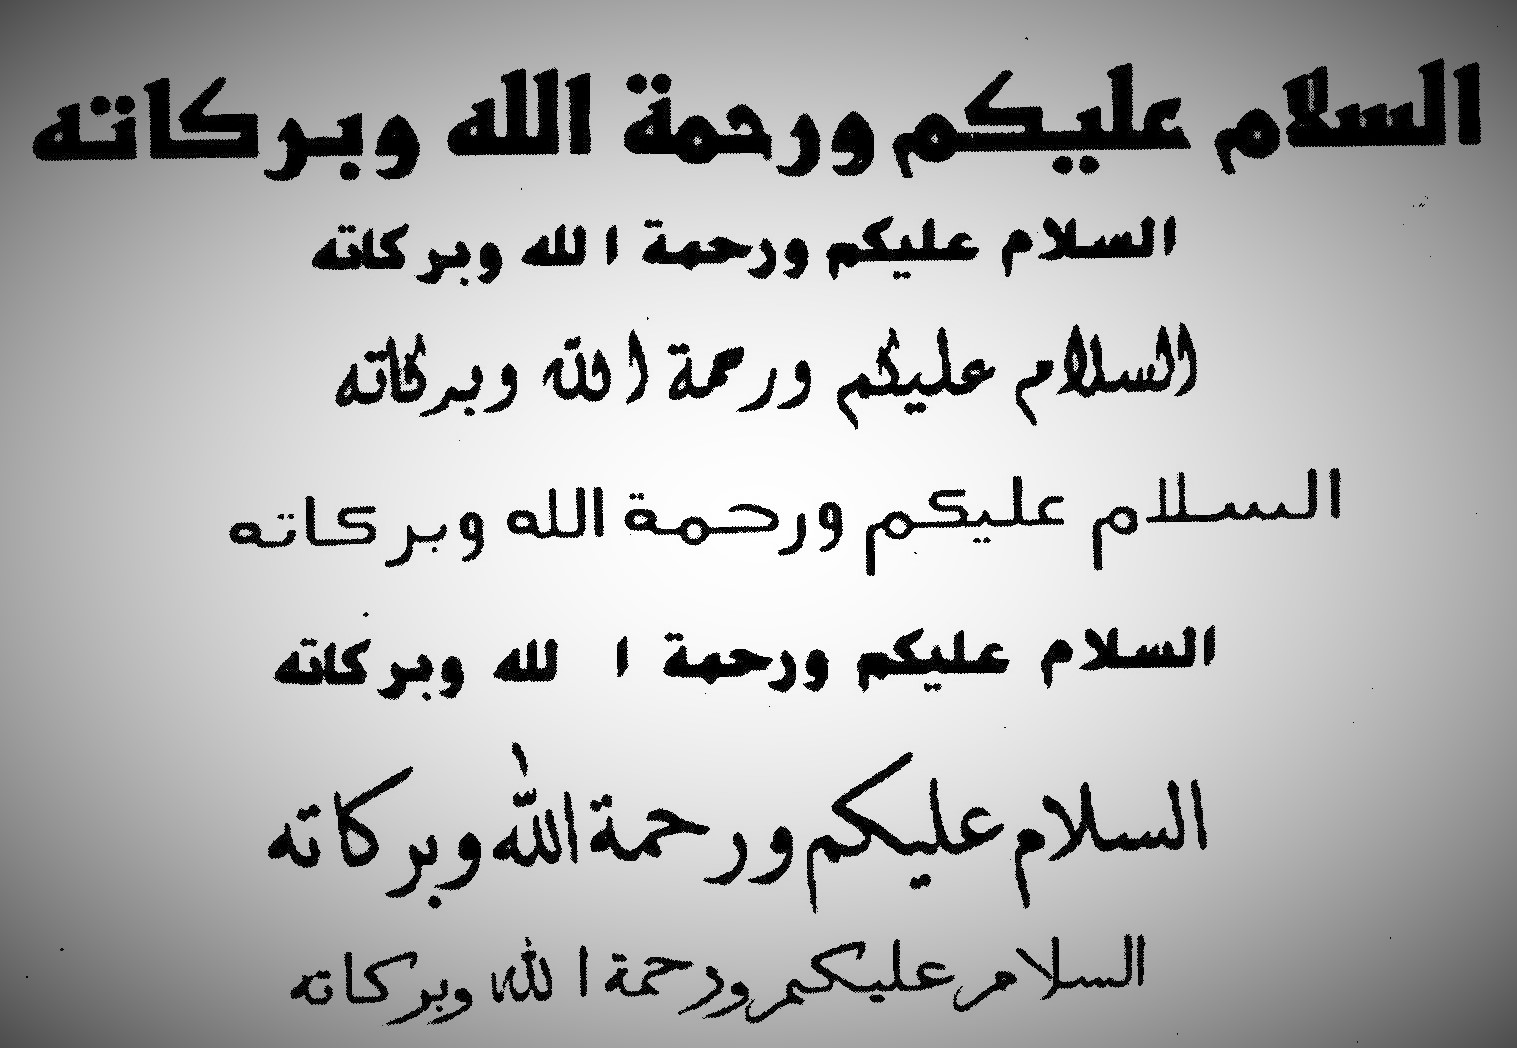 السلام عليكم ورحمة الله وبركاته
السلام عليكم ورحمة الله وبركاته
السلام عليكم ورحمة الله وبركاته
السلام عليكم ورحمة الله وبركاته
السلام عليكم ورحمة الله وبركاته
السلام عليكم ورحمة الله وبركاته
السلام عليكم ورحمة الله وبركاته